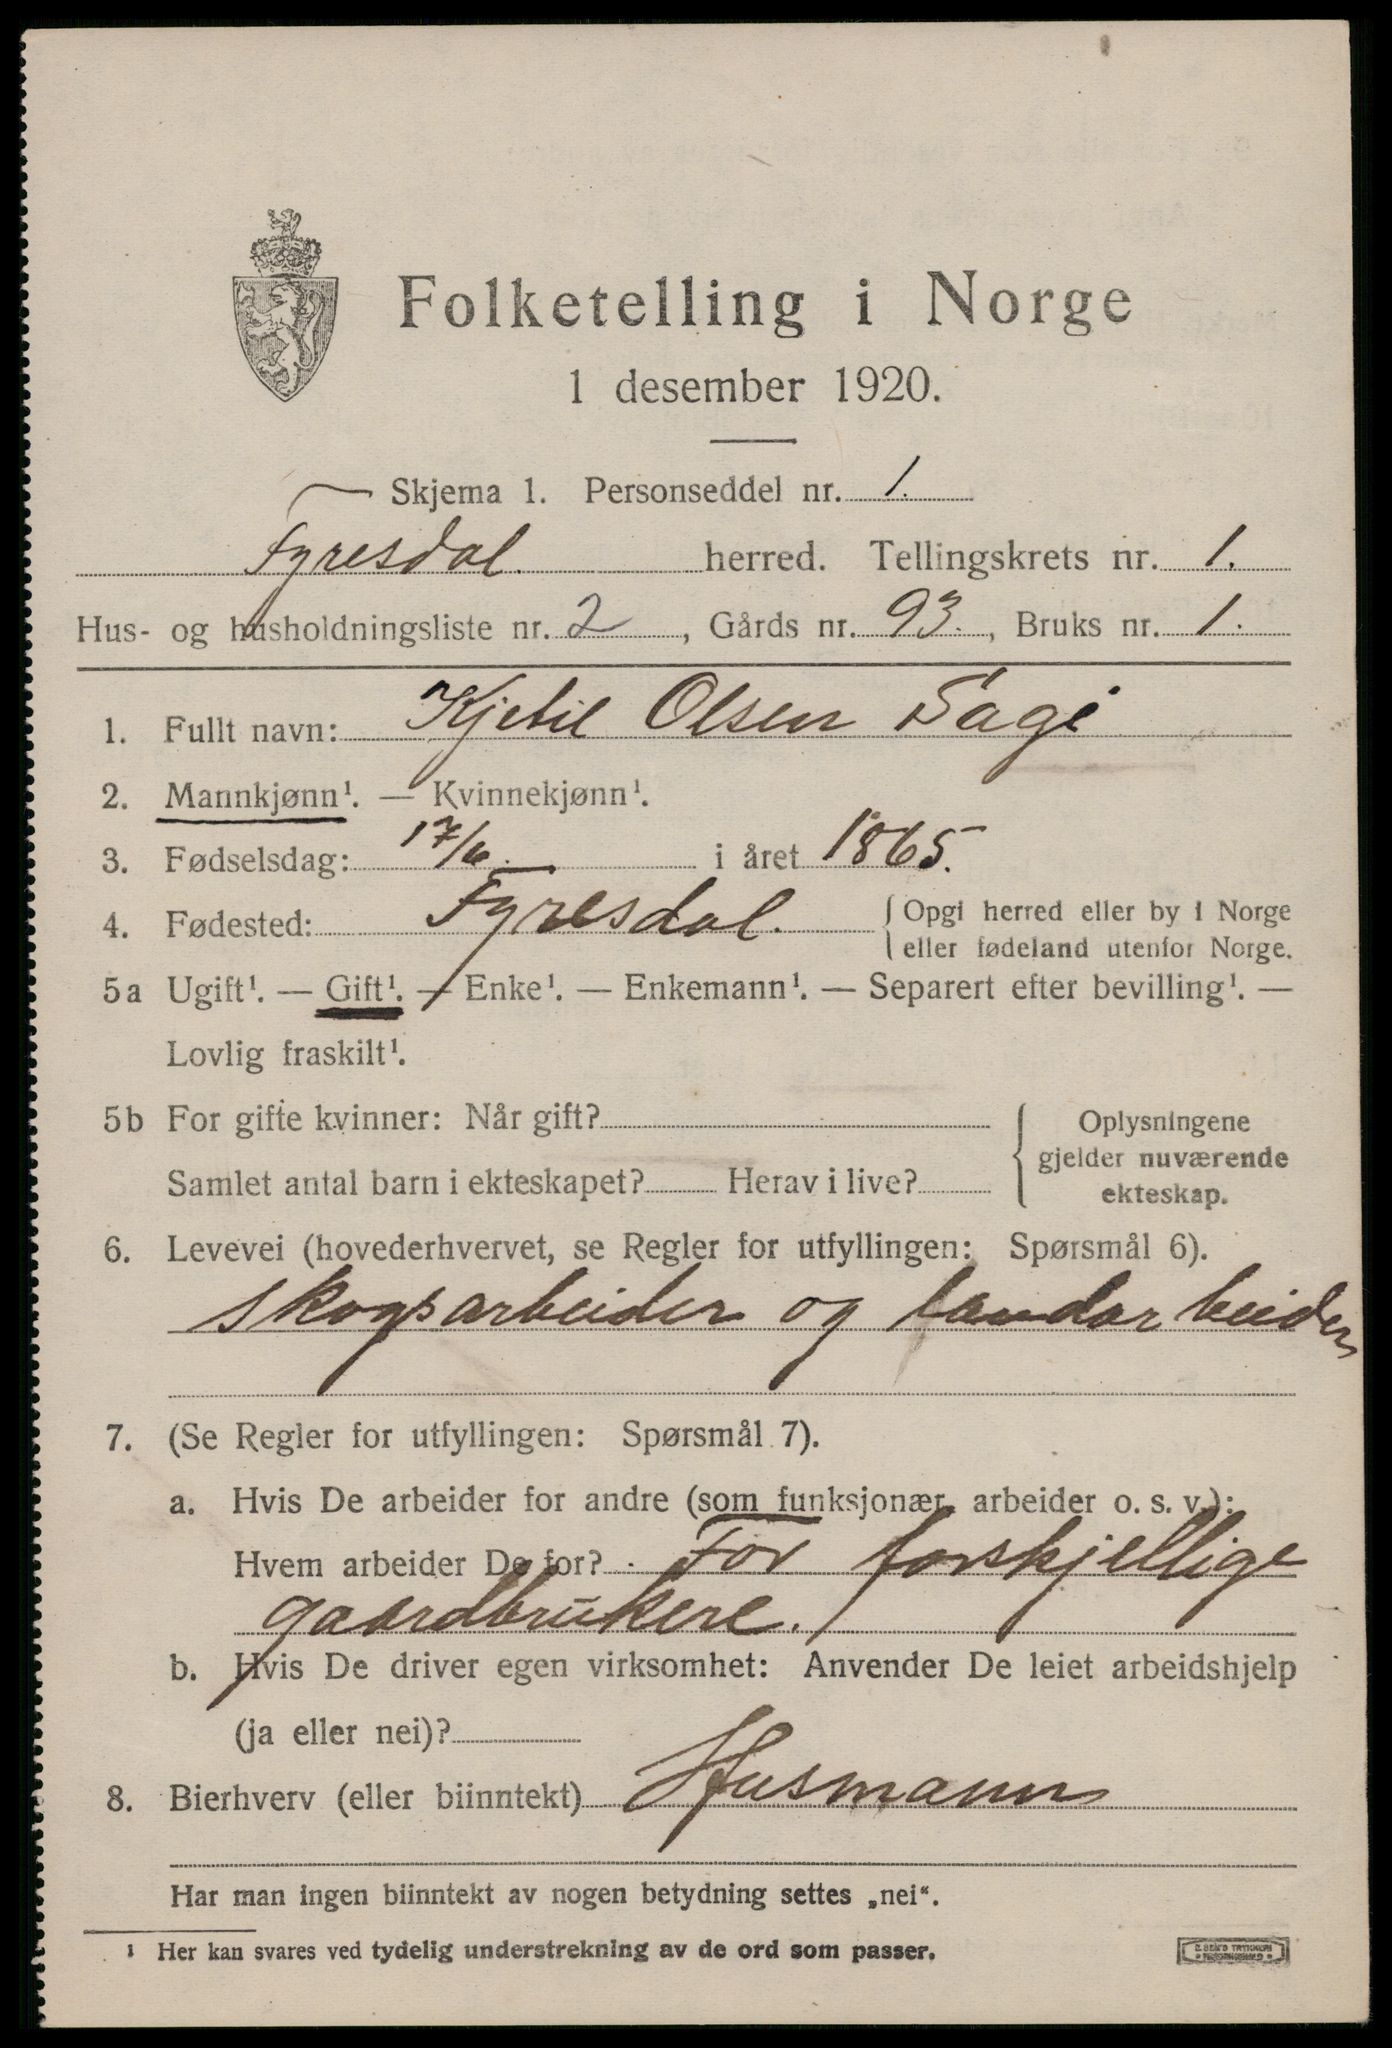 Folketelling i Norge
1 desember 1920.
Skjema 1. Personseddel nr. 1.
Fyresdal. herred. Tellingskrets nr. 1.
Hus- og husholdningsliste nr. 2, Gårds nr. 93., Bruks nr. 1.
1. Fullt navn: Kjetil Olsen Sagi
2. Mannkjønn¹. — Kvinnekjønn¹.
3. Fødselsdag: 17/6. i året 1865.
4. Fødested: Fyresdal. { Opgi herred eller by i Norge
eller fødeland utenfor Norge.
5a Ugift¹. — Gift¹. — Enke¹. — Enkemann¹. — Separert efter bevilling¹. —
Lovlig fraskilt¹.
5b For gifte kvinner: Når gift?
Samlet antal barn i ekteskapet? Herav i live?
{ Oplysningene
gjelder nuværende
ekteskap.
6. Levevei (hovederhvervet, se Regler for utfyllingen: Spørsmål 6).
skogsarbeider og landarbeider
7. (Se Regler for utfyllingen: Spørsmål 7).
a. Hvis De arbeider for andre (som funksjonær, arbeider o. s. v.):
Hvem arbeider De for? For forskjellige
gaardbrukere.
b. Hvis De driver egen virksomhet: Anvender De leiet arbeidshjelp
(ja eller nei)?
8. Bierhverv (eller biinntekt) Husmann
Har man ingen biinntekt av nogen betydning settes „nei“.
¹ Her kan svares ved tydelig understrekning av de ord som passer.